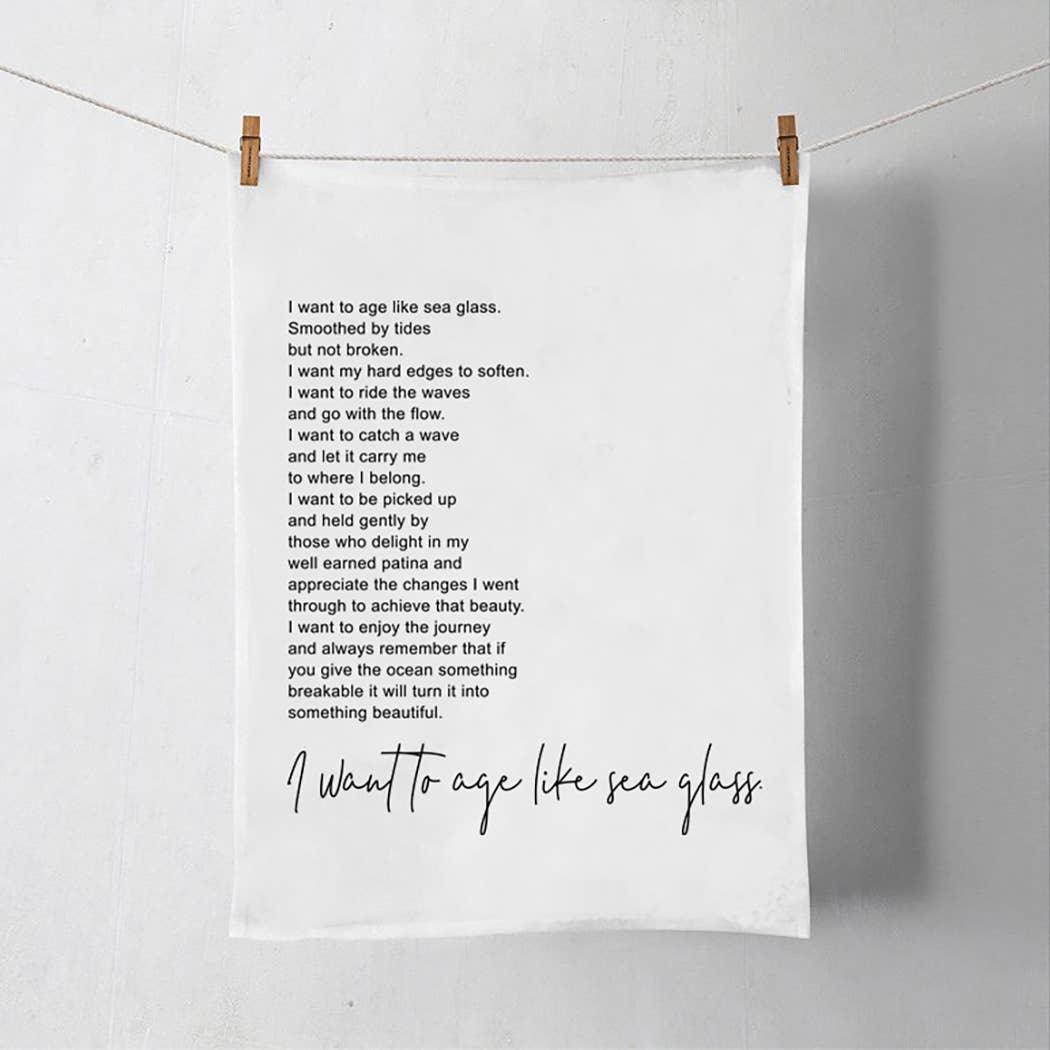 I want to age like sea glass.
Smoothed by tides
but not broken.
I want my hard edges to soften.
I want to ride the waves
and go with the flow.
I want to catch a wave
and let it carry me
to where I belong.
I want to be picked up
and held gently by
those who delight in my
well earned patina and
appreciate the changes I went
through to achieve that beauty.
I want to enjoy the journey
and always remember that if
you give the ocean something
breakable it will turn it into
something beautiful.
I want to age like sea glass.